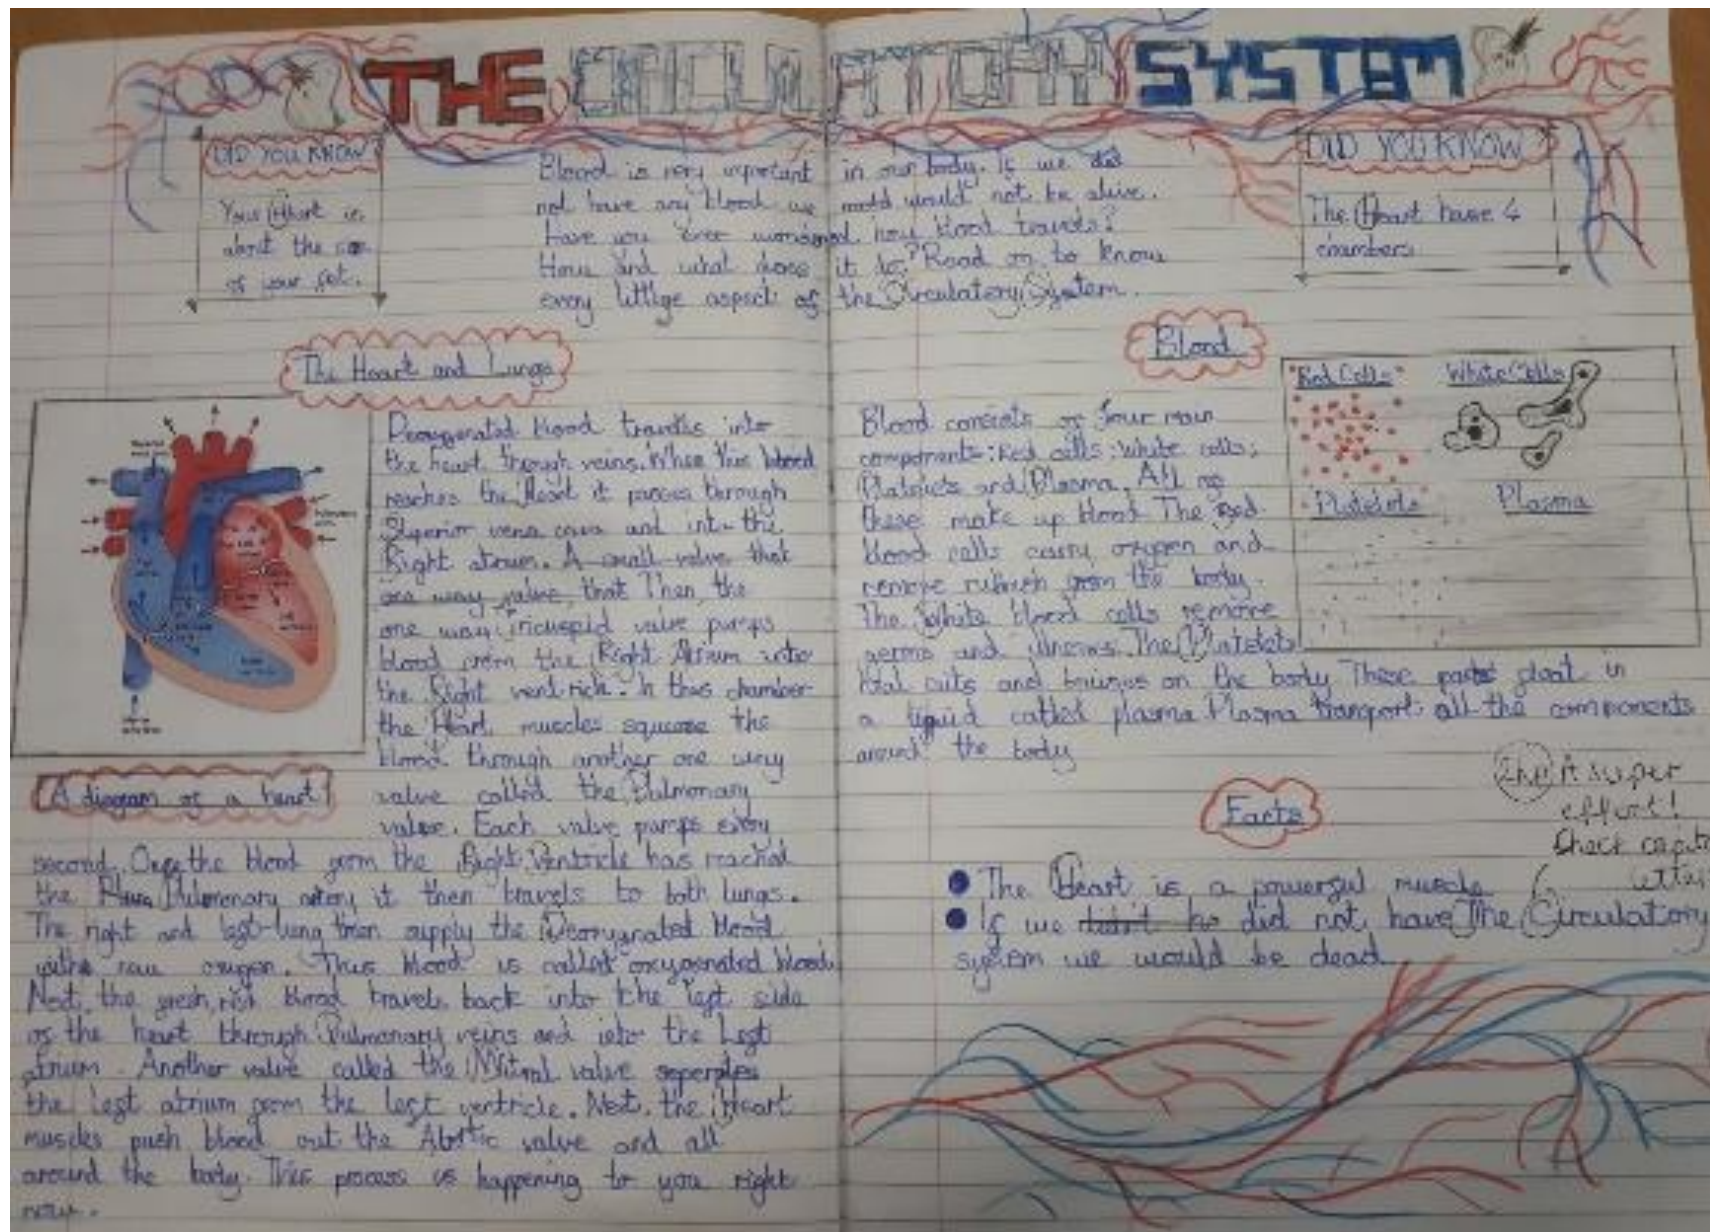 THE CIRCULATORY SYSTEM
DID YOU KNOW?
Your Heart is
about the size
of your fist.
Blood is very important in our body. If we did
not have any blood we would not be alive.
Have you ever wondered how blood travels?
How and what does it do? Read on to know
every little aspect of the Circulatory System.
DID YOU KNOW
The Heart have 4
chambers
The Heart and Lungs
Deoxygenated blood travels into
the heart through veins. When this blood
reaches the Heart it passes through
Superior vena cava and into the
Right atrium. A small valve that
one way valve, that Then, the
one way tricuspid valve pumps
blood from the Right Atrium into
the Right ventricle. In this chamber
the Heart muscles squeeze the
blood through another one way
valve called the Pulmonary
valve. Each valve pumps every
second. Once the blood from the Right Ventricle has reached
the Pulmonary artery it then travels to both lungs.
The right and left lung then supply the Deoxygenated blood
with new oxygen. This blood is called oxygenated blood.
Next, the fresh, rich blood travels back into the left side
of the heart through Pulmonary veins and into the Left
atrium. Another valve called the Mitral valve seperates
the left atrium from the left ventricle. Next, the Heart
muscles push blood out the Abortic valve and all
around the body. This process is happening to you right
now.
A diagram of a heart
Blood
Blood consists of four main
components: Red cells; White cells;
Platelets and Plasma. All of
these make up blood. The Red
blood cells carry oxygen and
remove rubbish from the body.
The White blood cells remove
germs and illness. The Platelets
heal cuts and bruises on the body. These parts float in
a liquid called plasma. Plasma transports all the components
around the body
Red Cells
White Cells
Platelets
Plasma
Facts
The Heart is a powerful muscle
If we didn't ha did not have The Circulatory
system we would be dead
2hp A super
effort!
Check capital
letters